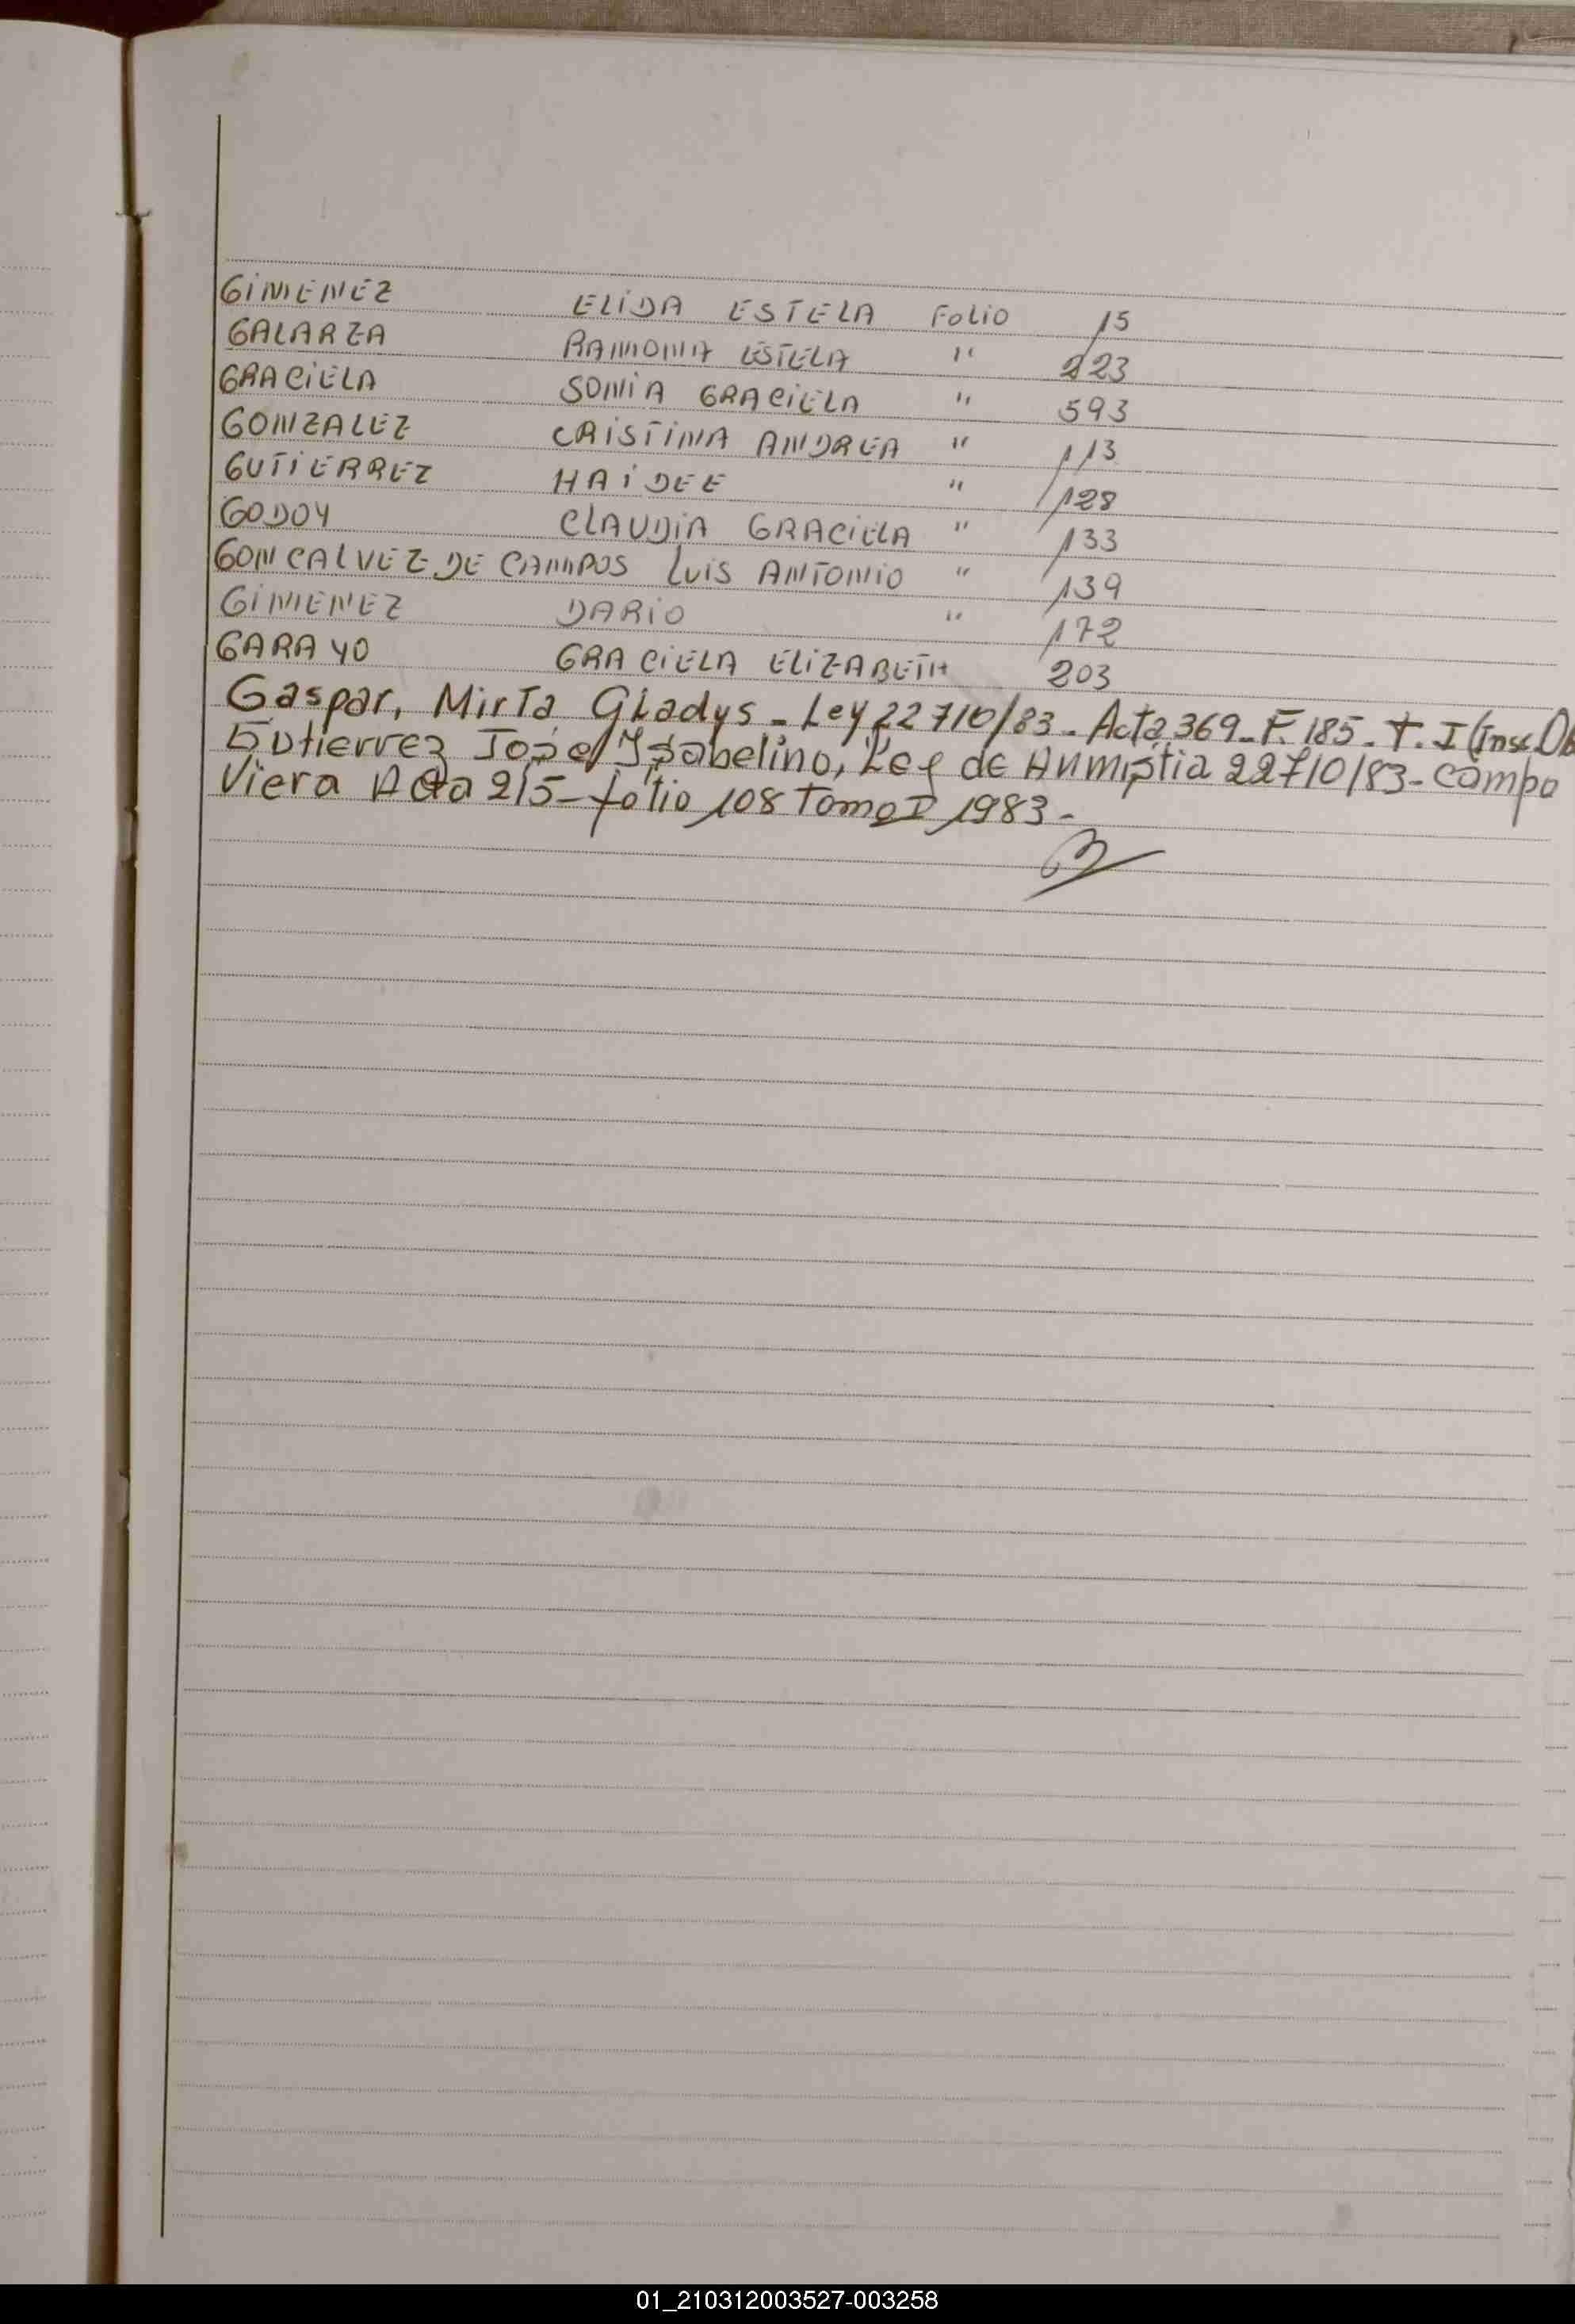 GIMENEZ ELIDA ESTELA Folio 15
GALARZA RAMONA ESTELA " 223
GRACIELA SONIA GRACIELA " 593
GONZALEZ CRISTINA ANDREA " 113
GUTIERREZ HAIDEE " 128
GODOY CLAUDIA GRACIELA " 133
GONCALVEZ DE CAMPOS LUIS ANTONIO " 139
GIMENEZ DARIO " 172
GARAYO GRACIELA ELIZABETH 203
Gaspar, Mirta Gladys - Ley 22710/83 - Acta 369 - F. 185 - T. I (Insc. Ob
Gutierrez José Ysabelino, Ley de Anmistia 22710/83 - Campo
Viera Acta 215 - folio 108 Tomo I 1983 -
01_210312003527-003258